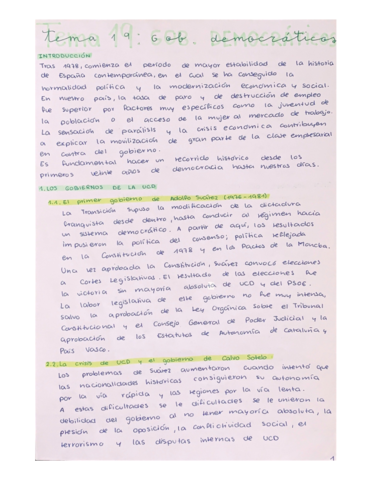 Tema 19: Gob. democráticos
INTRODUCCIÓN
Tras 1978, comienza el período de mayor estabilidad de la historia
de España contemporánea, en el cual se ha conseguido la
normalidad política y la modernización económica y social.
En nuestro país, la tasa de paro y de destrucción de empleo
fue superior por factores muy específicos como la juventud de
la población o el acceso de la mujer al mercado de trabajo.
La sensación de parálisis y la crisis económica contribuyen
a explicar la movilización de gran parte de la clase empresarial
en contra del gobierno.
Es fundamental hacer un recorrido histórico desde los
primeros veinte años de democracia hasta nuestros días.
1. LOS GOBIERNOS DE LA UCD
1.1. El primer gobierno de Adolfo Suárez (1976-1981)
La Transición supuso la modificación de la dictadura
franquista desde dentro, hasta conducir al régimen hacia
un sistema democrático. A partir de aquí, los resultados
impusieron la política del consenso; política reflejada
en la Constitución de 1978 y en los Pactos de la Moncloa.
Una vez aprobada la Constitución, Suárez convocó elecciones
a Cortes Legislativas. El resultado de las elecciones fue
la victoria sin mayoría absoluta de UCD y del PSOE.
La labor legislativa de este gobierno no fue muy intensa,
salvo la aprobación de la Ley Orgánica sobre el Tribunal
Constitucional y el Consejo General de Poder Judicial y la
aprobación de los Estatutos de Autonomía de Cataluña y
País Vasco.
2.2. La crisis de UCD y el gobierno de Calvo Sotelo
Los problemas de Suárez aumentaron cuando intentó que
las nacionalidades históricas consiguieron su autonomía
por la vía rápida y las regiones por la vía lenta.
A estas dificultades se le dificultades se le unieron la
debilidad del gobierno al no tener mayoría absoluta, la
presión de la oposición, la conflictividad social, el
terrorismo y las disputas internas de UCD
1